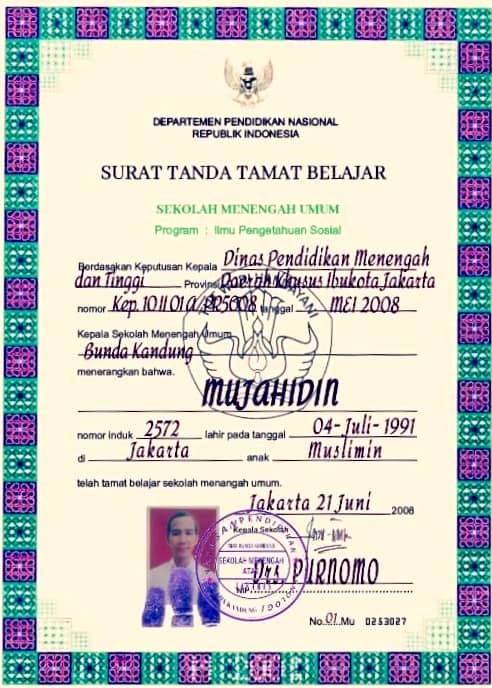 DEPARTEMEN PENDIDIKAN NASIONAL
REPUBLIK INDONESIA
SURAT TANDA TAMAT BELAJAR
SEKOLAH MENENGAH UMUM
Program : Ilmu Pengetahuan Sosial
Berdasakan Keputusan Kepala Dinas Pendidikan Menengah
dan Tinggi Provinsi Daerah Khusus Ibukota Jakarta
nomor tanggal MEI 2008
Kepala Sekolah Menengah Umum
Bunda Kandung
menerangkan bahwa.
MUJAHIDIN
nomor induk 2572 lahir pada tanggal 04-Juli-1991
di Jakarta anak Muslimin
telah tamat belajar sekolah manangah umum.
Jakarta 21 Juni 2008
Kepala Sekolah
SEKOLAH MENENGAH
ATAS
Drs. PURNOMO
NIP
No. 01 Mu 0253027